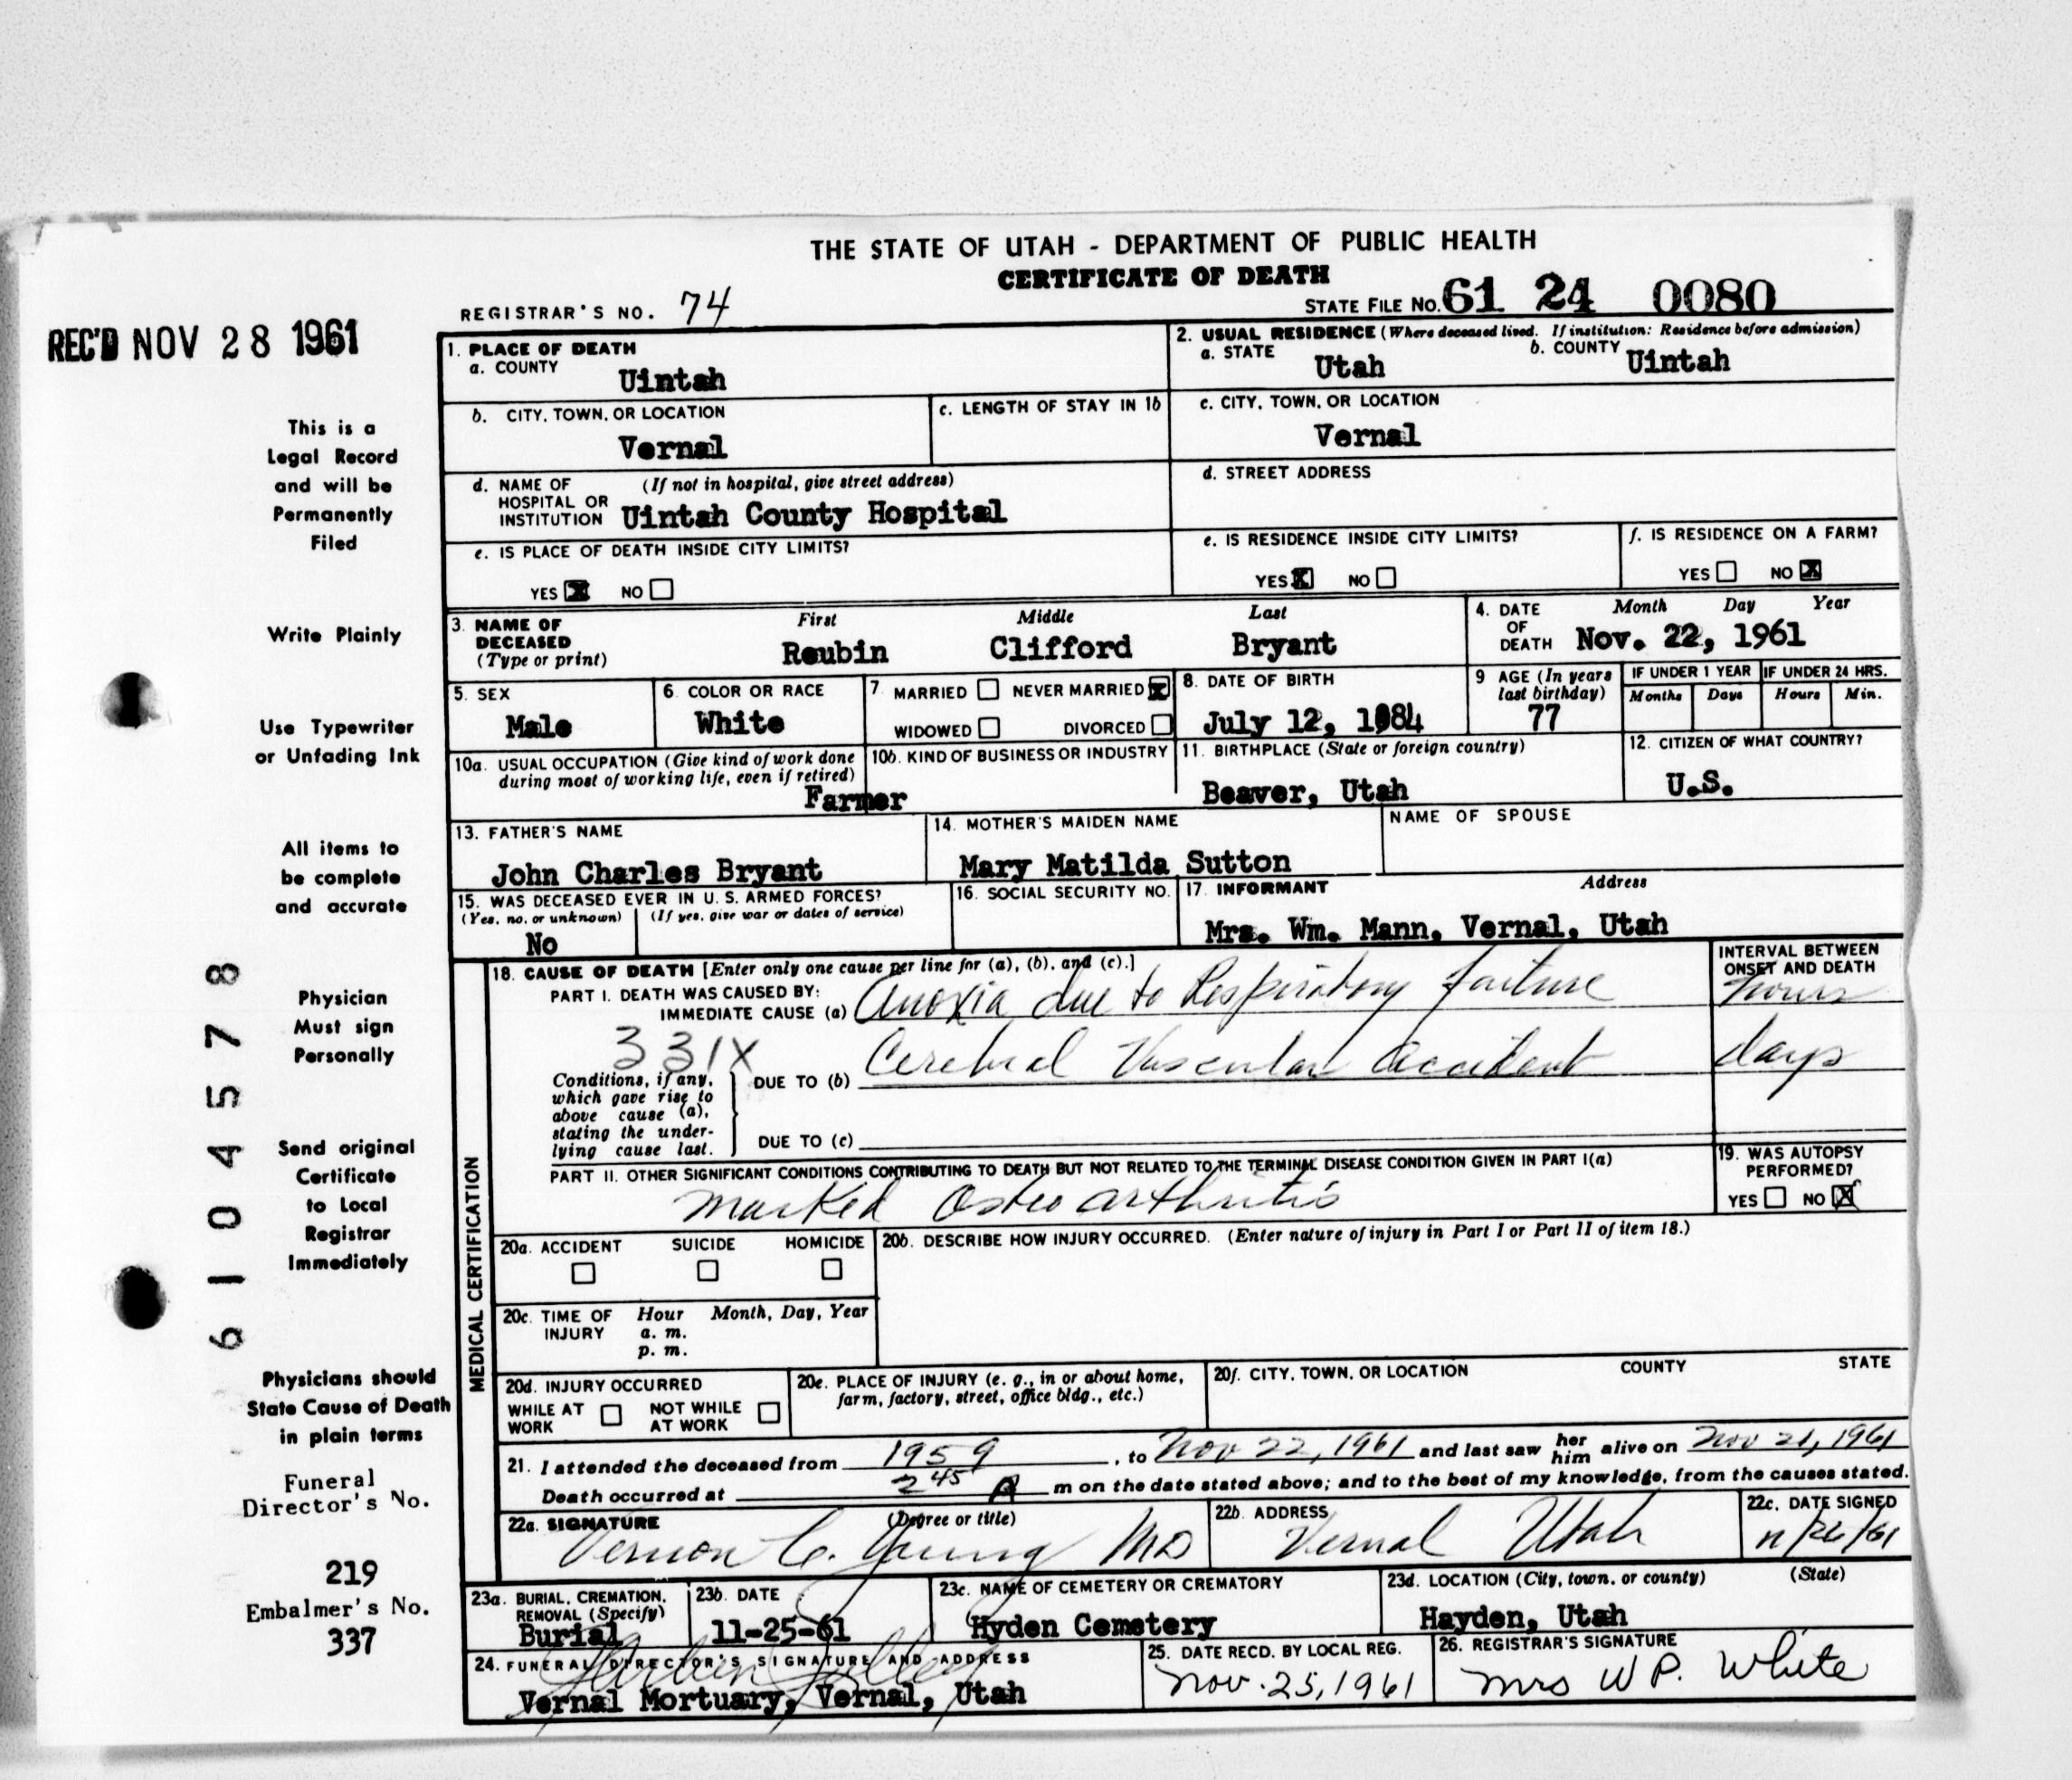 THE STATE OF UTAH - DEPARTMENT OF PUBLIC HEALTH
CERTIFICATE OF DEATH
REGISTRAR'S NO. 74
STATE FILE NO. 61 24 0080
REC'D NOV 28 1961
1. PLACE OF DEATH
a. COUNTY
Uintah
2. USUAL RESIDENCE (Where deceased lived. If institution: Residence before admission)
a. STATE
Utah
b. COUNTY
Uintah
b. CITY, TOWN, OR LOCATION
Vernal
c. LENGTH OF STAY IN 1b
c. CITY, TOWN, OR LOCATION
Vernal
d. NAME OF (If not in hospital, give street address)
HOSPITAL OR
INSTITUTION Uintah County Hospital
d. STREET ADDRESS
e. IS PLACE OF DEATH INSIDE CITY LIMITS?
YES X NO
e. IS RESIDENCE INSIDE CITY LIMITS?
YES X NO
f. IS RESIDENCE ON A FARM?
YES NO X
3. NAME OF
DECEASED
(Type or print)
First Middle Last
Reubin Clifford Bryant
4. DATE
OF
DEATH
Month Day Year
Nov. 22, 1961
5. SEX
Male
6. COLOR OR RACE
White
7. MARRIED NEVER MARRIED X
WIDOWED DIVORCED
8. DATE OF BIRTH
July 12, 1884
9 AGE (In years
last birthday)
77
IF UNDER 1 YEAR
Months Days
IF UNDER 24 HRS.
Hours Min.
10a. USUAL OCCUPATION (Give kind of work done
during most of working life, even if retired)
Farmer
10b. KIND OF BUSINESS OR INDUSTRY
11. BIRTHPLACE (State or foreign country)
Beaver, Utah
12. CITIZEN OF WHAT COUNTRY?
U.S.
13. FATHER'S NAME
John Charles Bryant
14. MOTHER'S MAIDEN NAME
Mary Matilda Sutton
NAME OF SPOUSE
15. WAS DECEASED EVER IN U. S. ARMED FORCES?
(Yes, no, or unknown) (If yes, give war or dates of service)
No
16. SOCIAL SECURITY NO.
17. INFORMANT Address
Mrs. Wm. Mann, Vernal, Utah
MEDICAL CERTIFICATION
18. CAUSE OF DEATH [Enter only one cause per line for (a), (b), and (c).]
PART I. DEATH WAS CAUSED BY:
IMMEDIATE CAUSE (a) Anoxia due to Respiratory failure
INTERVAL BETWEEN
ONSET AND DEATH
hours
331X
Conditions, if any,
which gave rise to
above cause (a),
stating the under-
lying cause last.
DUE TO (b) Cerebral Vascular Accident
days
DUE TO (c)
PART II. OTHER SIGNIFICANT CONDITIONS CONTRIBUTING TO DEATH BUT NOT RELATED TO THE TERMINAL DISEASE CONDITION GIVEN IN PART I(a)
marked Osteoarthritis
19. WAS AUTOPSY
PERFORMED?
YES NO X
20a. ACCIDENT SUICIDE HOMICIDE
20b. DESCRIBE HOW INJURY OCCURRED. (Enter nature of injury in Part I or Part II of item 18.)
20c. TIME OF
INJURY
Hour Month, Day, Year
a. m.
p. m.
20d. INJURY OCCURRED
WHILE AT
WORK
NOT WHILE
AT WORK
20e. PLACE OF INJURY (e. g., in or about home,
farm, factory, street, office bldg., etc.)
20f. CITY, TOWN, OR LOCATION COUNTY STATE
21. I attended the deceased from 1959, to Nov 22, 1961 and last saw her him alive on Nov 21, 1961
Death occurred at 2 45 A m on the date stated above; and to the best of my knowledge, from the causes stated.
22a. SIGNATURE (Degree or title)
Vernon C. Young MD
22b. ADDRESS
Vernal Utah
22c. DATE SIGNED
11/26/61
23a. BURIAL, CREMATION,
REMOVAL (Specify)
Burial
23b. DATE
11-25-61
23c. NAME OF CEMETERY OR CREMATORY
Hyden Cemetery
23d. LOCATION (City, town, or county) (State)
Hayden, Utah
24. FUNERAL DIRECTOR'S SIGNATURE AND ADDRESS
Vernal Mortuary, Vernal, Utah
25. DATE RECD. BY LOCAL REG.
Nov. 25, 1961
26. REGISTRAR'S SIGNATURE
Mrs W P. White
This is a
Legal Record
and will be
Permanently
Filed
Write Plainly
Use Typewriter
or Unfading Ink
All items to
be complete
and accurate
Physician
Must sign
Personally
Send original
Certificate
to Local
Registrar
Immediately
Physicians should
State Cause of Death
in plain terms
Funeral
Director's No.
219
Embalmer's No.
337
61 04578